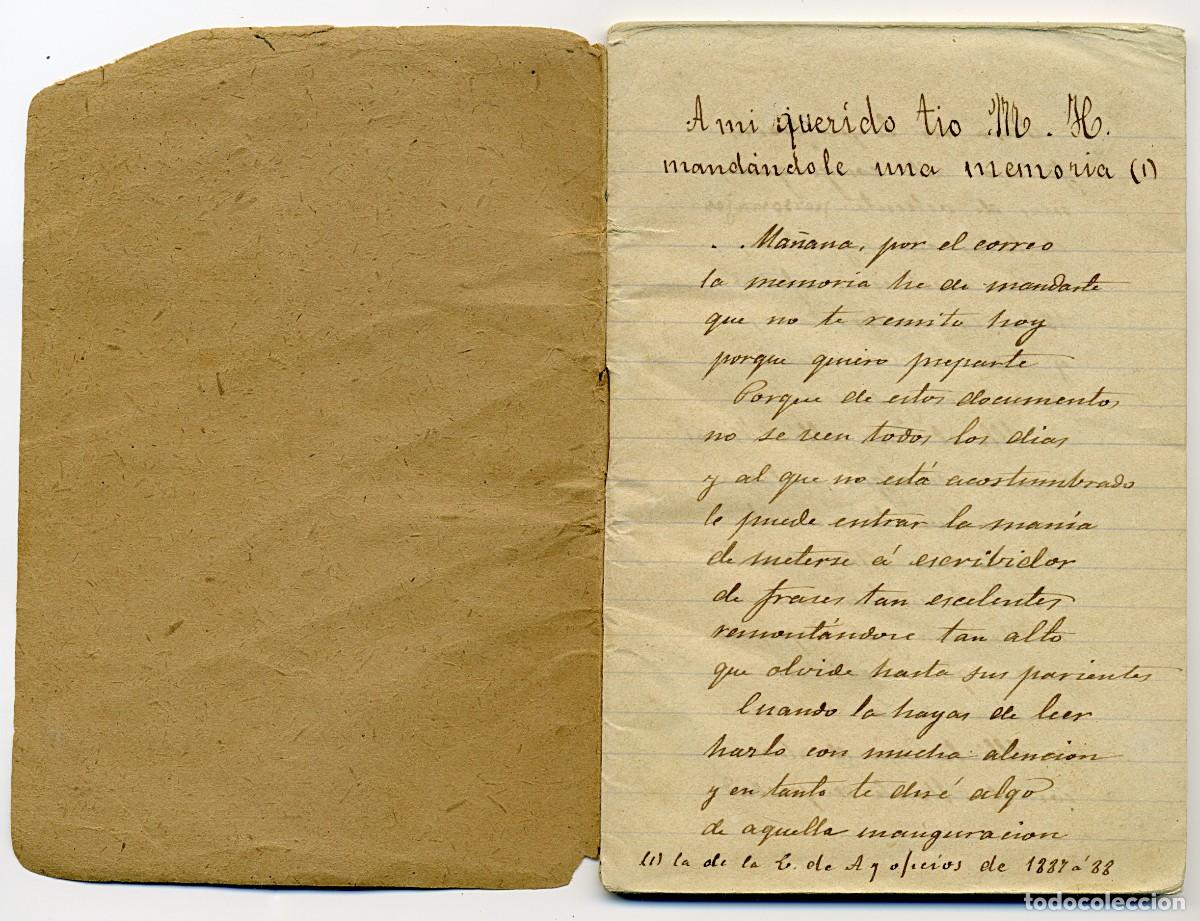 A mi querido tio M. H.
mandándole una memoria (1)
Mañana, por el correo
la memoria he de mandarte
que no te remito hoy
porque quiero preparte
Porque de estos documentos
no se veen todos los dias
y al que no está acostumbrado
le puede entrar la manía
de meterse á escribidor
de frases tan escelentes
remontándose tan alto
que olvide hasta sus parientes
Cuando la hayas de leer
hazlo con mucha atencion
y en tanto te diré algo
de aquella inauguracion
(1) la de la E. de A y oficios de 1887 á 88
todocoleccion